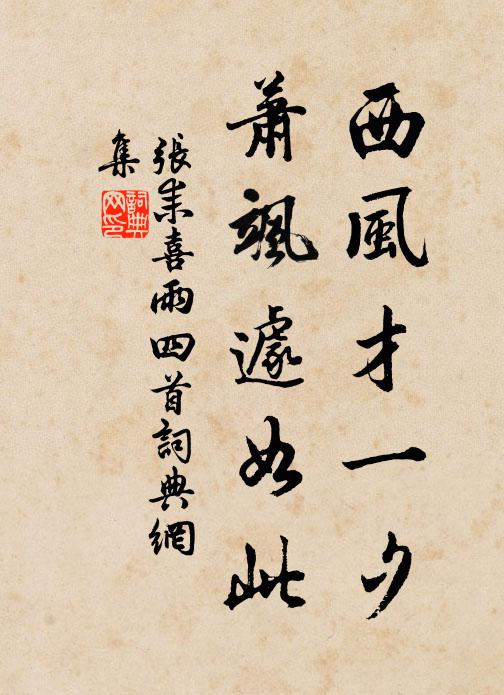 西風才一夕
蕭颯遽如此
張耒喜雨四首詞典網
集
詞典网印